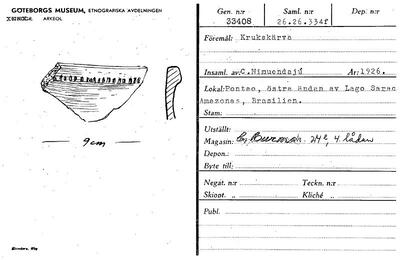 GÖTEBORGS MUSEUM, ETNOGRAFISKA AVDELNINGEN
ARKEOL
9 cm
Gen. n:r
33408
Saml. n:r
26.26.334f
Dep. n:r
Föremål: Krukskärva
Insaml. av: C. Nimuendajú År: 1926.
Lokal: Pontao, östra änden av Lago Sarac
Amazonas, Brasilien.
Stam:
Utställt:
Magasin: 4 lådan
Depon.:
Byte till:
Negat. n:r Teckn. n:r
Skioot. „ Kliché „
Publ.